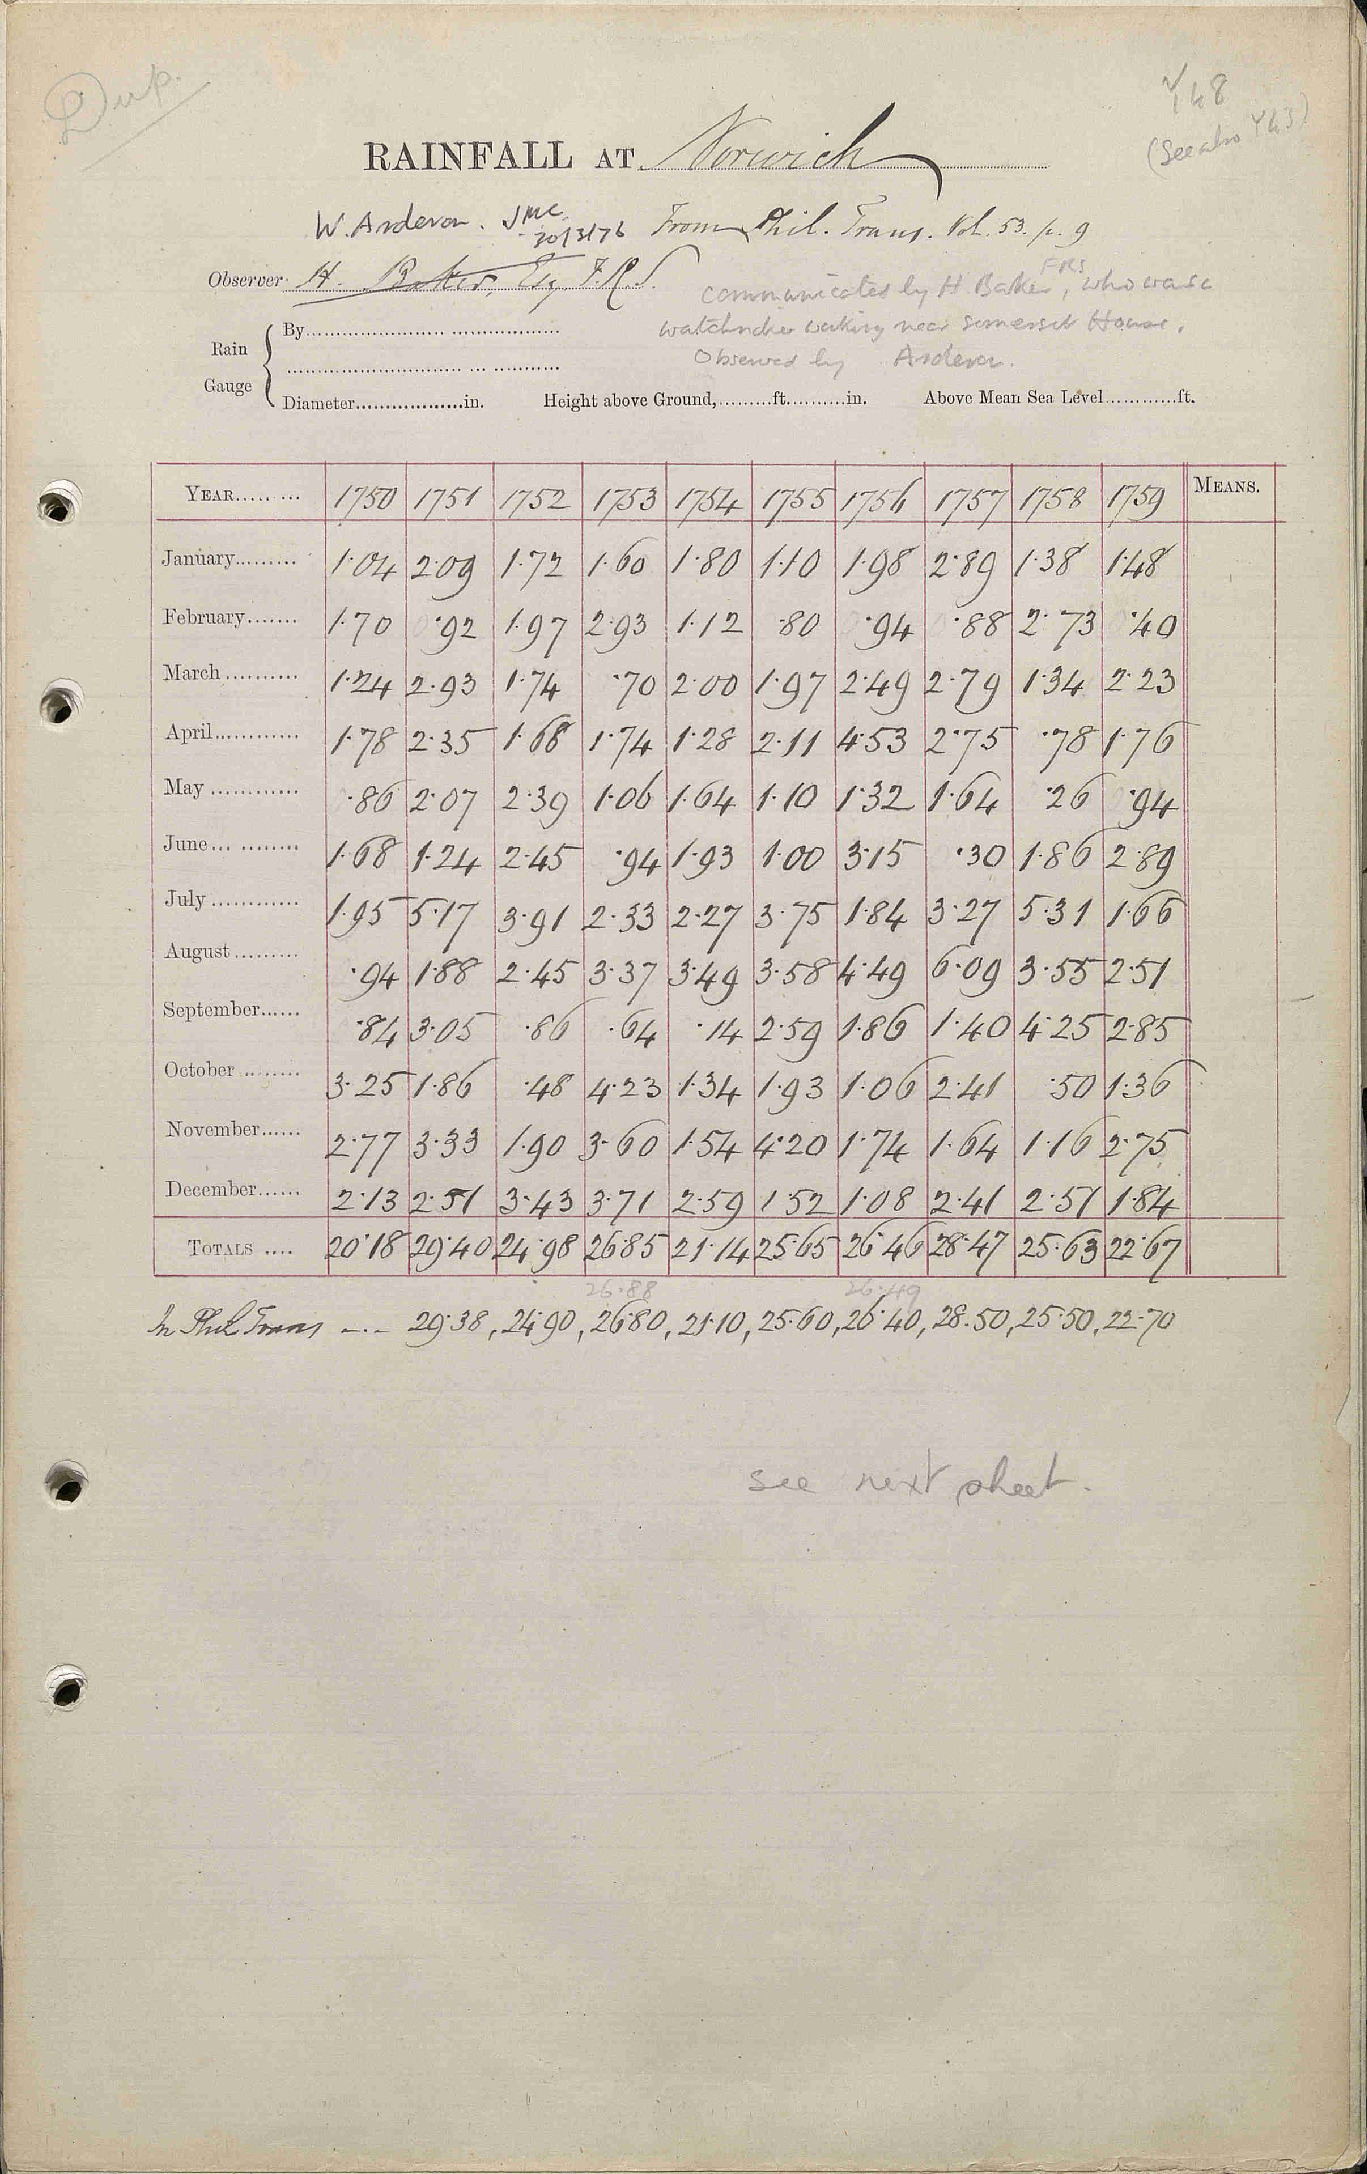 Dup.
Y48
(See also Y43)
RAINFALL AT Norwich
W. Arderon. JMC. 20/3/76 From Phil. Trans. Vol. 53. p. 9
Observer H. Baker, Esq F.R.S.
communicated by H. Baker FRS, who was a
By
watchmaker working near Somerset House.
Rain
Observed by Arderon.
Gauge
Diameter in. Height above Ground, ft. in. Above Mean Sea Level ft.
YEAR 1750 1751 1752 1753 1754 1755 1756 1757 1758 1759 MEANS.
January 1.04 2.09 1.72 1.60 1.80 1.10 1.98 2.89 1.38 1.48
February 1.70 .92 1.97 2.93 1.12 .80 .94 .88 2.73 .40
March 1.24 2.93 1.74 .70 2.00 1.97 2.49 2.79 1.34 2.23
April 1.78 2.35 1.68 1.74 1.28 2.11 4.53 2.75 .78 1.76
May .86 2.07 2.39 1.06 1.64 1.10 1.32 1.64 .26 .94
June 1.68 1.24 2.45 .94 1.93 1.00 3.15 .30 1.86 2.89
July 1.95 5.17 3.91 2.33 2.27 3.75 1.84 3.27 5.31 1.66
August .94 1.88 2.45 3.37 3.49 3.58 4.49 6.09 3.55 2.51
September .84 3.05 .86 .64 .14 2.59 1.86 1.40 4.25 2.85
October 3.25 1.86 .48 4.23 1.34 1.93 1.06 2.41 .50 1.36
November 2.77 3.33 1.90 3.60 1.54 4.20 1.74 1.64 1.16 2.75
December 2.13 2.51 3.43 3.71 2.59 1.52 1.08 2.41 2.51 1.84
TOTALS 20.18 29.40 24.98 26.85 21.14 25.65 26.46 28.47 25.63 22.67
26.88 26.49
In Phil Trans -.- 29.38, 24.90, 26.80, 21.10, 25.60, 26.40, 28.50, 25.50, 22.70
see next sheet.